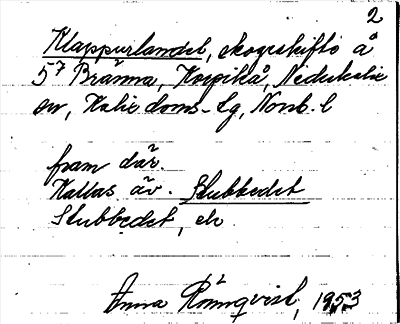 2
Klappurlandet, skogsskifte å
5⁷ Bränna, Korpikå, Nederkalix
sn, Kalix doms. lg, Norrb. l
fram där.
Kallas äv. Stubbedet
Stubbedet, ek
Anna Rönnqvist, 1953